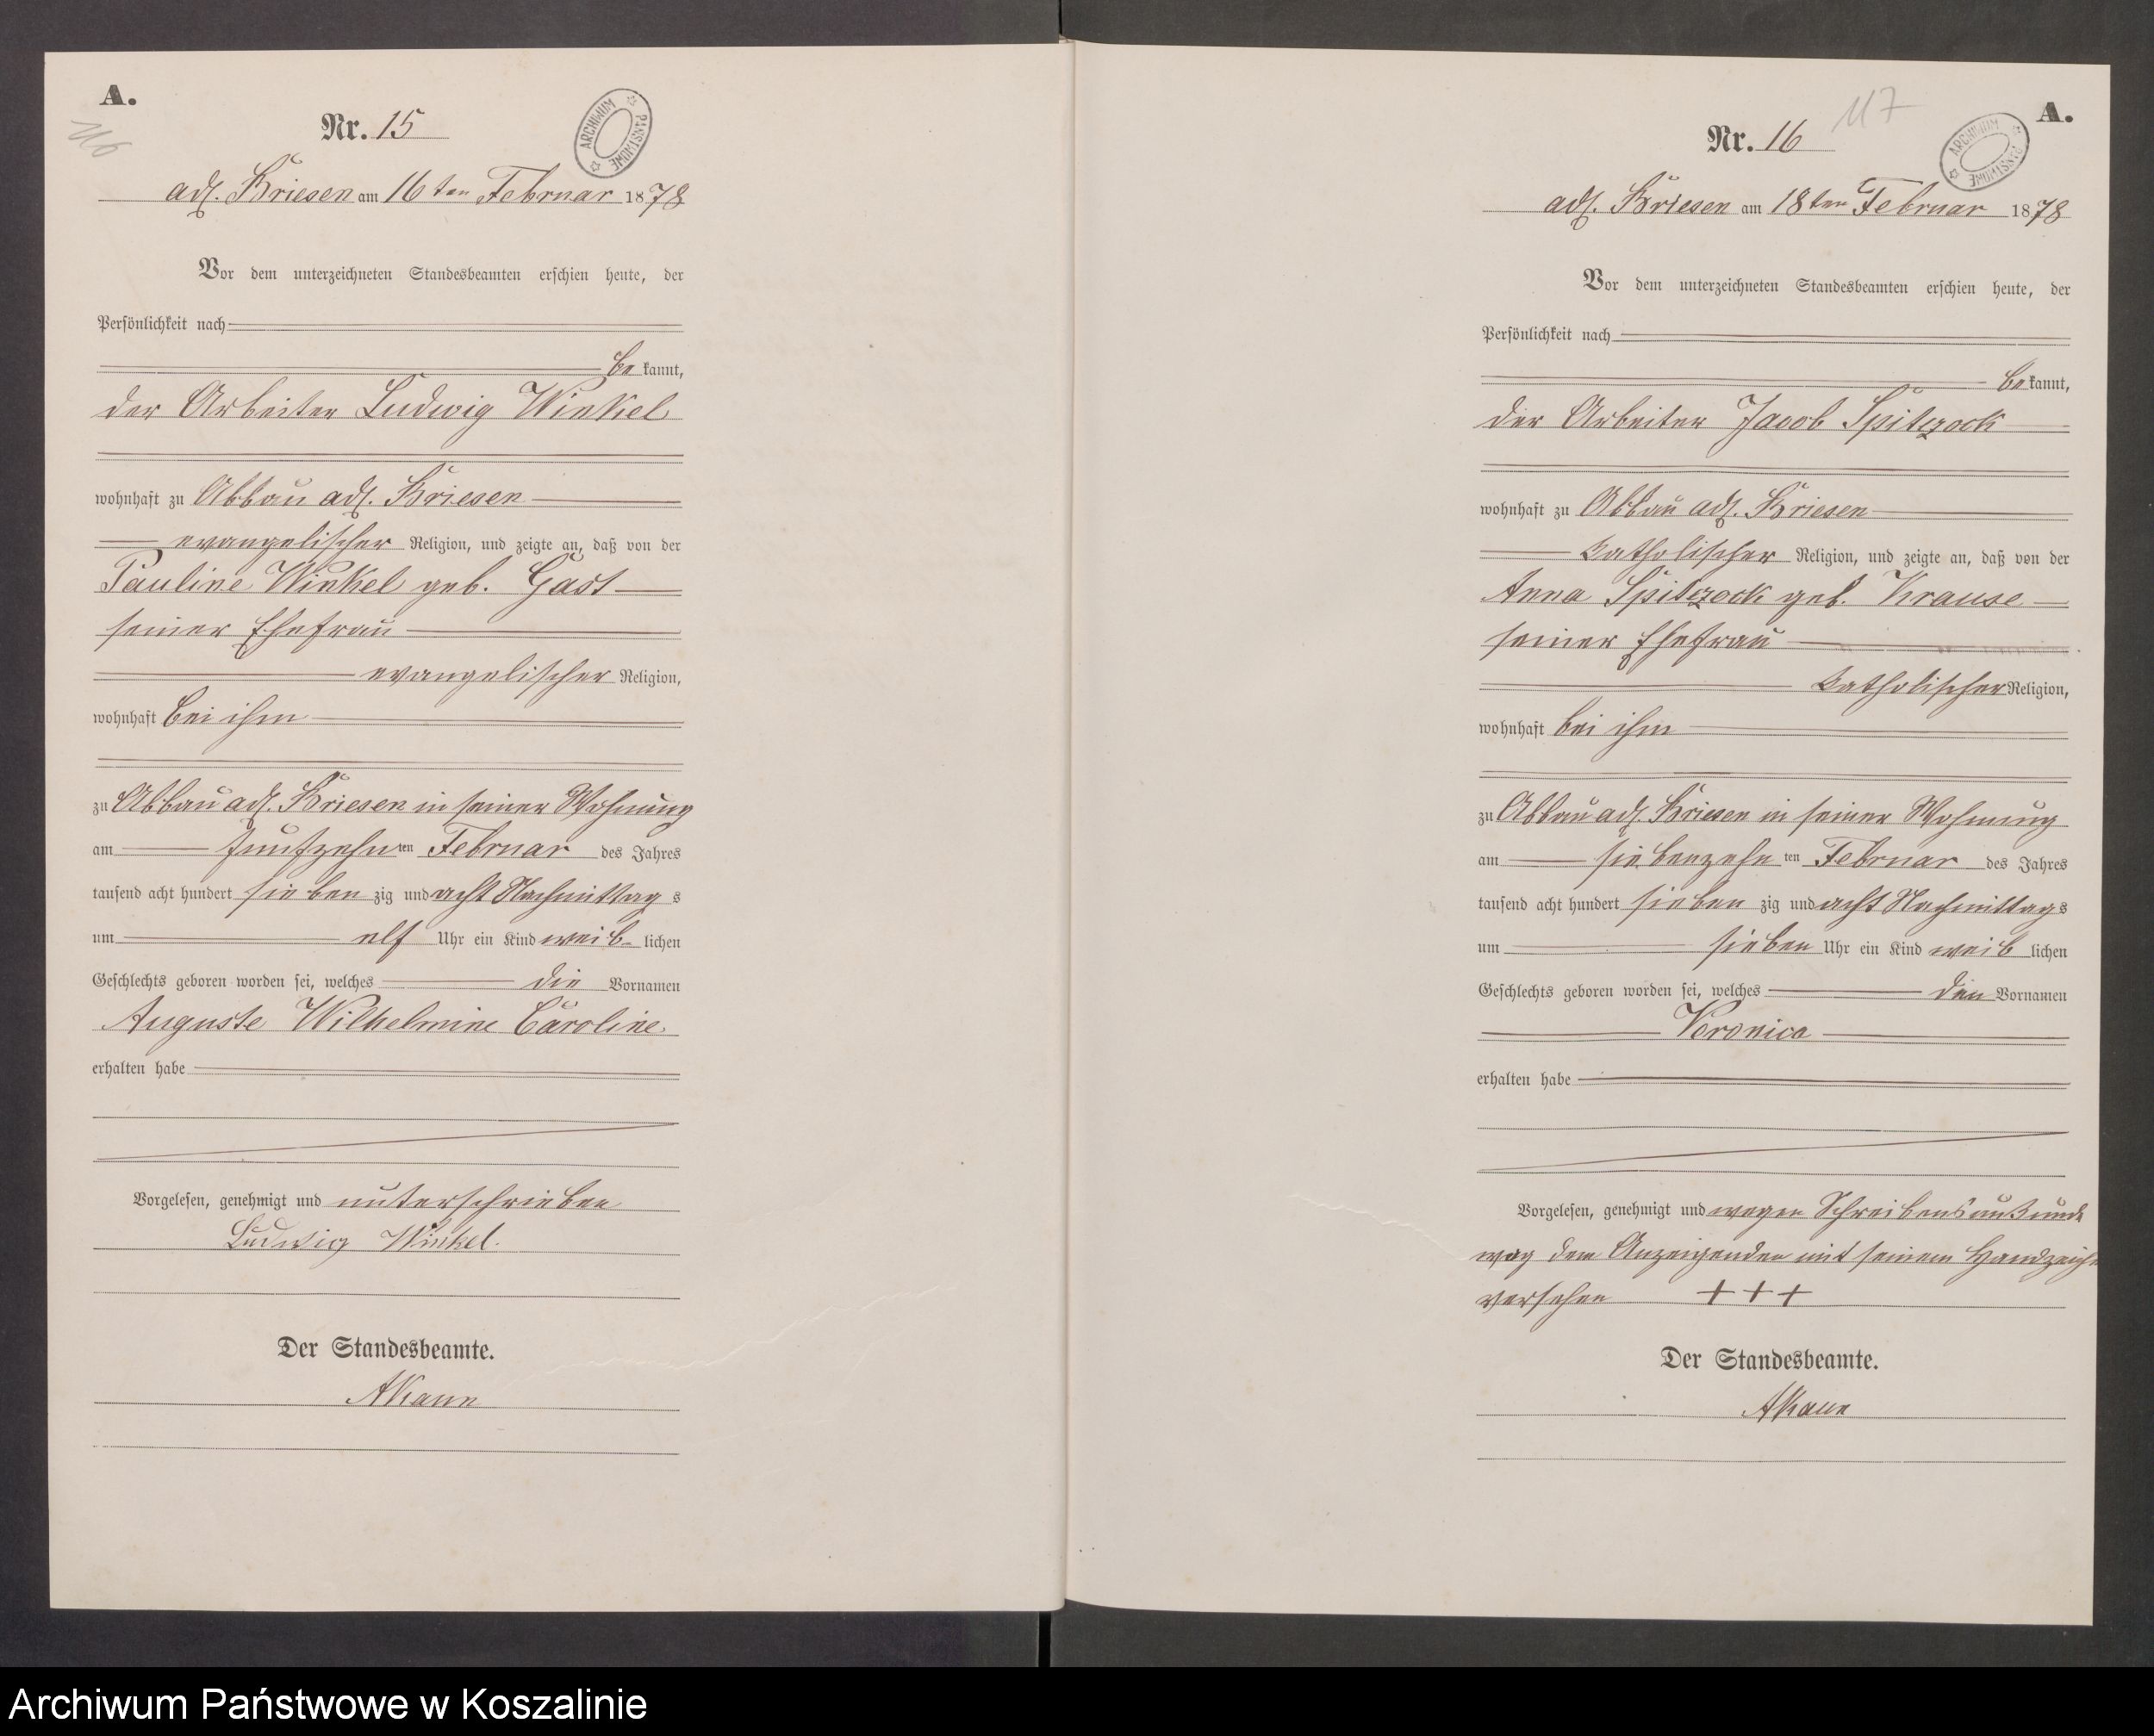 A.
116
Nr. 15
ARCHIWUM PAŃSTWOWE
adl. Briesen am 16ten Februar 1878
Vor dem unterzeichneten Standesbeamten erschien heute, der
Persönlichkeit nach
bekannt,
der Arbeiter Ludwig Winkel
wohnhaft zu Abbau adl. Briesen
evangelischer Religion, und zeigte an, daß von der
Pauline Winkel geb. Gast
seiner Ehefrau
evangelischer Religion,
wohnhaft bei ihm
zu Abbau adl. Briesen in seiner Wohnung
am fünfzehnten Februar des Jahres
tausend acht hundert siebenzig und acht Nachmittags
um elf Uhr ein Kind weiblichen
Geschlechts geboren worden sei, welches die Vornamen
Auguste Wilhelmine Caroline
erhalten habe
Vorgelesen, genehmigt und unterschrieben
Ludwig Winkel.
Der Standesbeamte.
A Kann
117
A.
Nr. 16
ARCHIWUM PAŃSTWOWE
adl. Briesen am 18ten Februar 1878
Vor dem unterzeichneten Standesbeamten erschien heute, der
Persönlichkeit nach
bekannt,
der Arbeiter Jacob Spitzock
wohnhaft zu Abbau adl. Briesen
katholischer Religion, und zeigte an, daß von der
Anna Spitzock geb. Krause
seiner Ehefrau
katholischer Religion,
wohnhaft bei ihm
zu Abbau adl. Briesen in seiner Wohnung
am siebenzehnten Februar des Jahres
tausend acht hundert siebenzig und acht Nachmittags
um sieben Uhr ein Kind weiblichen
Geschlechts geboren worden sei, welches den Vornamen
Veronica
erhalten habe
Vorgelesen, genehmigt und wegen Schreibensunkunde
dem Anzeigenden mit seinem Handzeichen
versehen +++
Der Standesbeamte.
A Kann
Archiwum Państwowe w Koszalinie